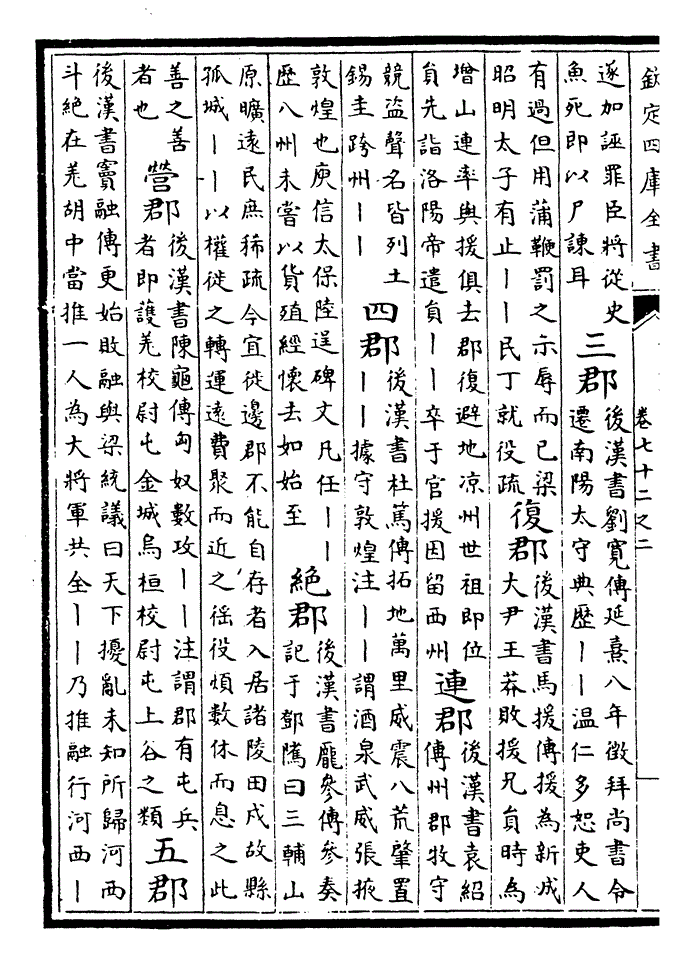 欽定四庫全書
卷七十二之二
遂加誣罪臣將從史
魚死即以尸諫耳
三郡
後漢書劉寬傳延熹八年徵拜尚書令
遷南陽太守典歷丨丨温仁多恕吏人
有過但用蒲鞭罰之示辱而已梁
昭明太子有止丨丨民丁就役疏
復郡
後漢書馬援傳援為新成
大尹王莽敗援兄員時為
增山連率與援俱去郡復避地凉州世祖即位
員先詣洛陽帝遣員丨丨卒于官援因留西州
連郡
後漢書袁紹
傳州郡牧守
競盗聲名皆列土
錫圭跨州丨丨
四郡
後漢書杜篤傳拓地萬里威震八荒肇置
丨丨據守敦煌注丨丨謂酒泉武威張掖
敦煌也庾信太保陸逞碑文凡任丨丨
歴八州未嘗以貨殖經懷去如始至
絶郡
後漢書龐參傳參奏
記于鄧隲曰三輔山
原曠遠民庶稀疏今宜徙邊郡不能自存者入居諸陵田戍故縣
孤城丨丨以權徙之轉運遠費聚而近之徭役煩數休而息之此
善之善
者也
營郡
後漢書陳龜傳匈奴數攻丨丨注謂郡有屯兵
者即護羌校尉屯金城烏桓校尉屯上谷之類
五郡
後漢書竇融傳更始敗融與梁統議曰天下擾亂未知所歸河西
斗絶在羌胡中當推一人為大將軍共全丨丨乃推融行河西丨